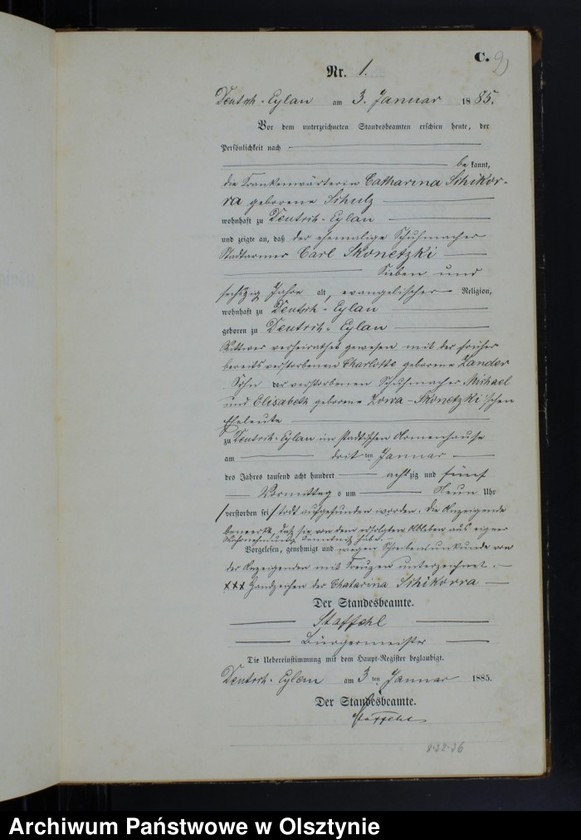 C. 2
Nr. 1.
Deutsch-Eylau am 3. Januar 1885.
Vor dem unterzeichneten Standesbeamten erschien heute, der
Persönlichkeit nach
bekannt,
die Krankenwärterin Catharina Schikor-
ra geborene Schulz
wohnhaft zu Deutsch-Eylau
und zeigte an, daß der ehemalige Schuhmacher
Stadtarmer Carl Skonetzki
Sieben und
sechszig Jahre alt, evangelischer Religion,
wohnhaft zu Deutsch-Eylau
geboren zu Deutsch-Eylau
Wittwer verheirathet gewesen mit der früher
bereits verstorbenen Charlotte geborene Zander
Sohn der verstorbenen Schuhmacher Michael
und Elisabeth geborene Skonetzki'schen
Eheleute
zu Deutsch-Eylau im städtischen Armenhause
am dritten Januar
des Jahres tausend acht hundert achtzig und fünf
Vormittag s um Neun Uhr
verstorben sei todt aufgefunden worden. die Anzeigende
bemerkt, daß sie von dem erfolgten Ableben aus eigner
Kenntniß habe.
Vorgelesen, genehmigt und wegen Schreibensunkunde von
der Anzeigenden mit Kreuzen unterzeichnet.
XXX Handzeichen der Chatarina Schikorra
Der Standesbeamte.
Staffehl
Bürgermeister
Die Uebereinstimmung mit dem Haupt-Register beglaubigt.
Deutsch-Eylau am 3ten Januar 1885.
Der Standesbeamte.
Staffehl
Archiwum Państwowe w Olsztynie